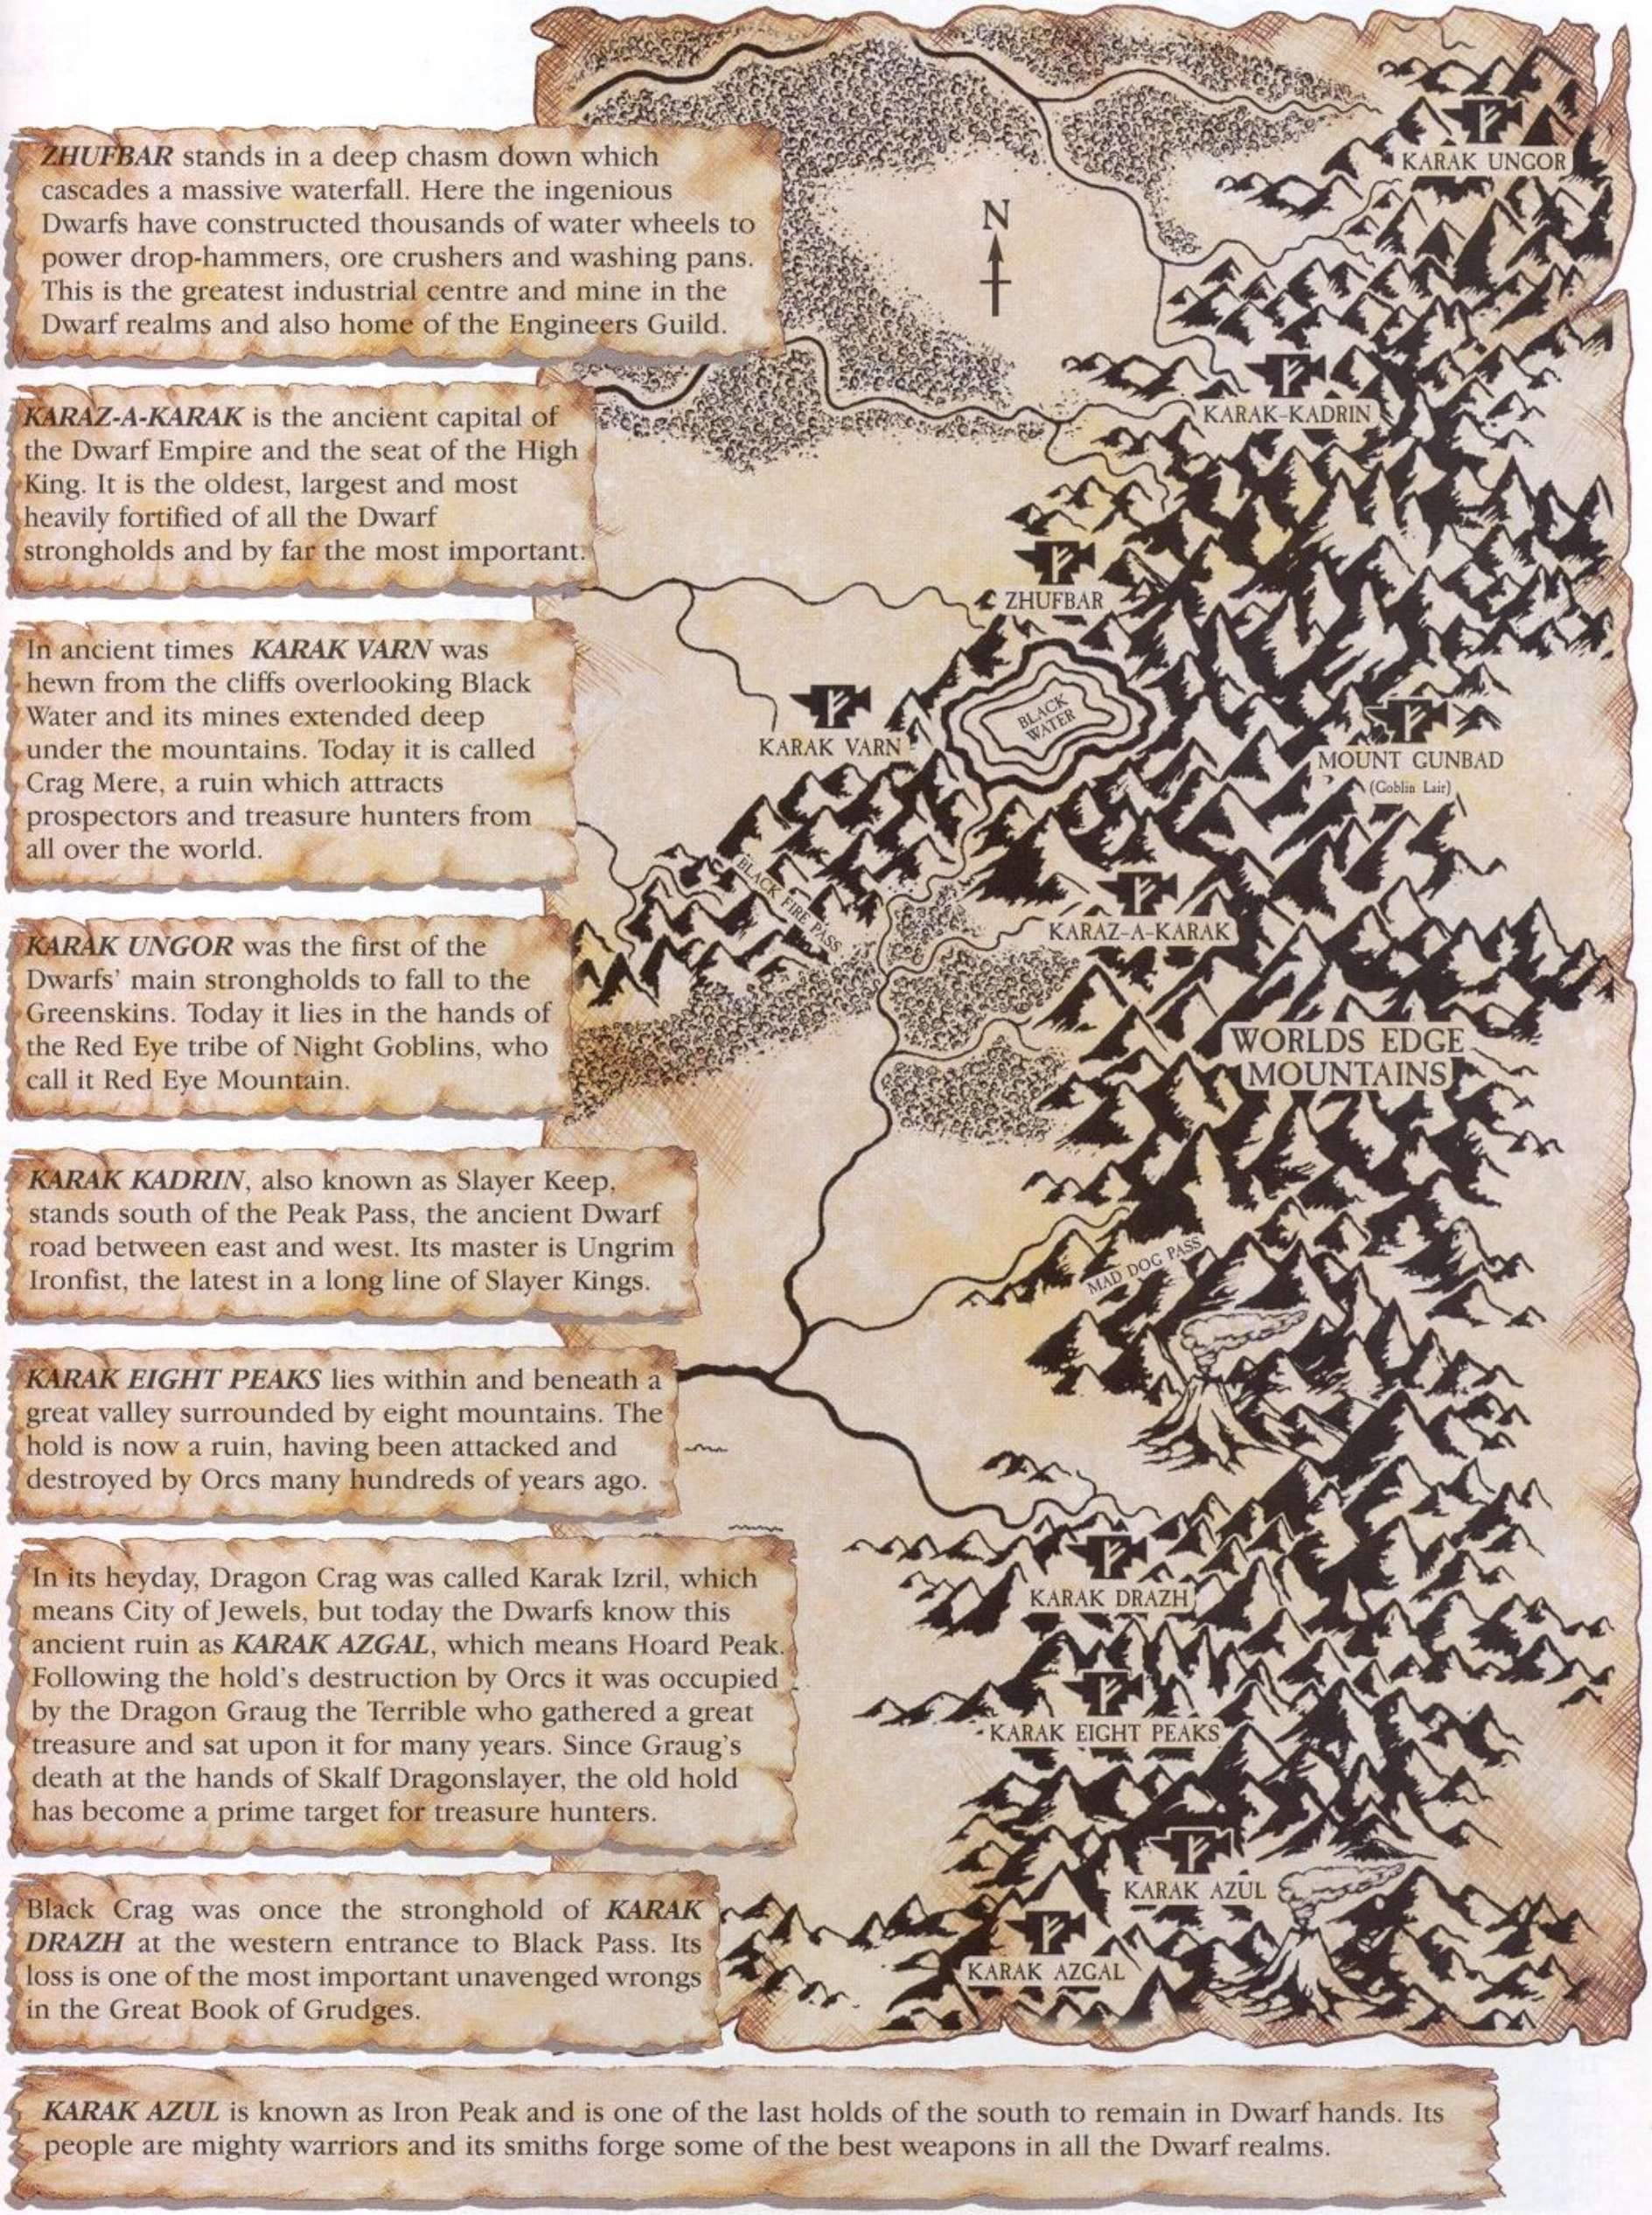 ZHUFBAR stands in a deep chasm down which
cascades a massive waterfall. Here the ingenious
Dwarfs have constructed thousands of water wheels to
power drop-hammers, ore crushers and washing pans.
This is the greatest industrial centre and mine in the
Dwarf realms and also home of the Engineers Guild.
KARAZ-A-KARAK is the ancient capital of
the Dwarf Empire and the seat of the High
King. It is the oldest, largest and most
heavily fortified of all the Dwarf
strongholds and by far the most important.
In ancient times KARAK VARN was
hewn from the cliffs overlooking Black
Water and its mines extended deep
under the mountains. Today it is called
Crag Mere, a ruin which attracts
prospectors and treasure hunters from
all over the world.
KARAK UNGOR was the first of the
Dwarfs' main strongholds to fall to the
Greenskins. Today it lies in the hands of
the Red Eye tribe of Night Goblins, who
call it Red Eye Mountain.
KARAK KADRIN, also known as Slayer Keep,
stands south of the Peak Pass, the ancient Dwarf
road between east and west. Its master is Ungrim
Ironfist, the latest in a long line of Slayer Kings.
KARAK EIGHT PEAKS lies within and beneath a
great valley surrounded by eight mountains. The
hold is now a ruin, having been attacked and
destroyed by Orcs many hundreds of years ago.
In its heyday, Dragon Crag was called Karak Izril, which
means City of Jewels, but today the Dwarfs know this
ancient ruin as KARAK AZGAL, which means Hoard Peak.
Following the hold's destruction by Orcs it was occupied
by the Dragon Graug the Terrible who gathered a great
treasure and sat upon it for many years. Since Graug's
death at the hands of Skalf Dragonslayer, the old hold
has become a prime target for treasure hunters.
Black Crag was once the stronghold of KARAK
DRAZH at the western entrance to Black Pass. Its
loss is one of the most important unavenged wrongs
in the Great Book of Grudges.
KARAK AZUL is known as Iron Peak and is one of the last holds of the south to remain in Dwarf hands. Its
people are mighty warriors and its smiths forge some of the best weapons in all the Dwarf realms.
KARAK UNGOR
N
KARAK-KADRIN
ZHUFBAR
BLACK
WATER
KARAK VARN
MOUNT GUNBAD
(Goblin Lair)
BLACK FIRE PASS
KARAZ-A-KARAK
WORLDS EDGE
MOUNTAINS
MAD DOG PASS
KARAK DRAZH
KARAK EIGHT PEAKS
KARAK AZUL
KARAK AZGAL